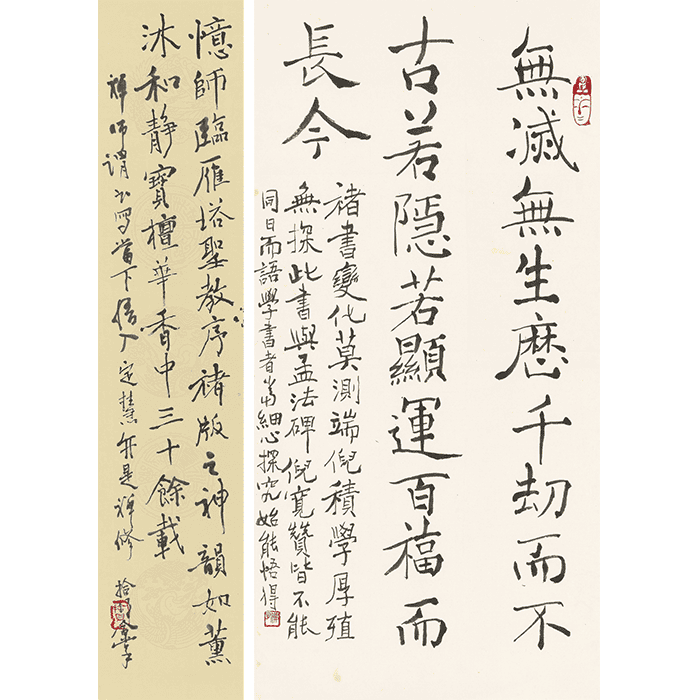 無滅無生歷千劫而不
古若隱若顯運百福而
長今
褚書變化莫測端倪積學厚殖
無探此書與孟法碑倪寬贊皆不能
同日而語學書者當細心探究始能悟得
憶師臨雁塔聖教序褚版之神韻如薰
沐和靜寶檀華香中三十餘載
禪師謂書寫當下悟入定慧亦是禪修
合掌